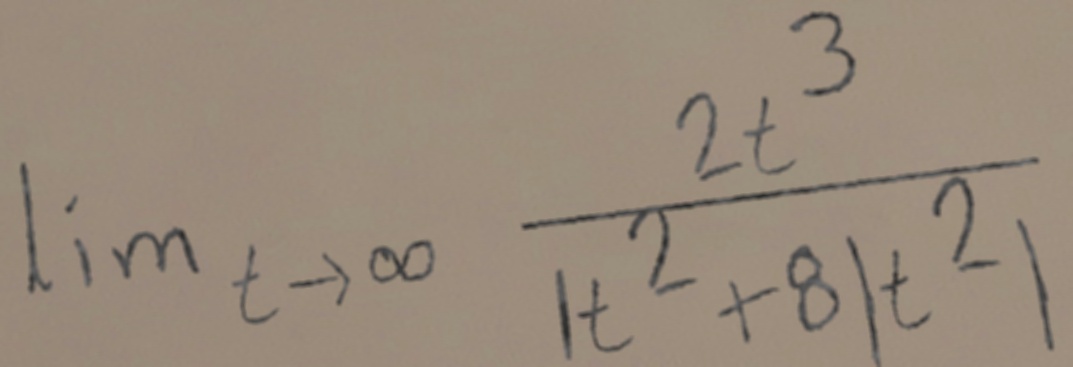 \lim_{t \to \infty} \frac{2t^3}{|t^2+8|t^2|}